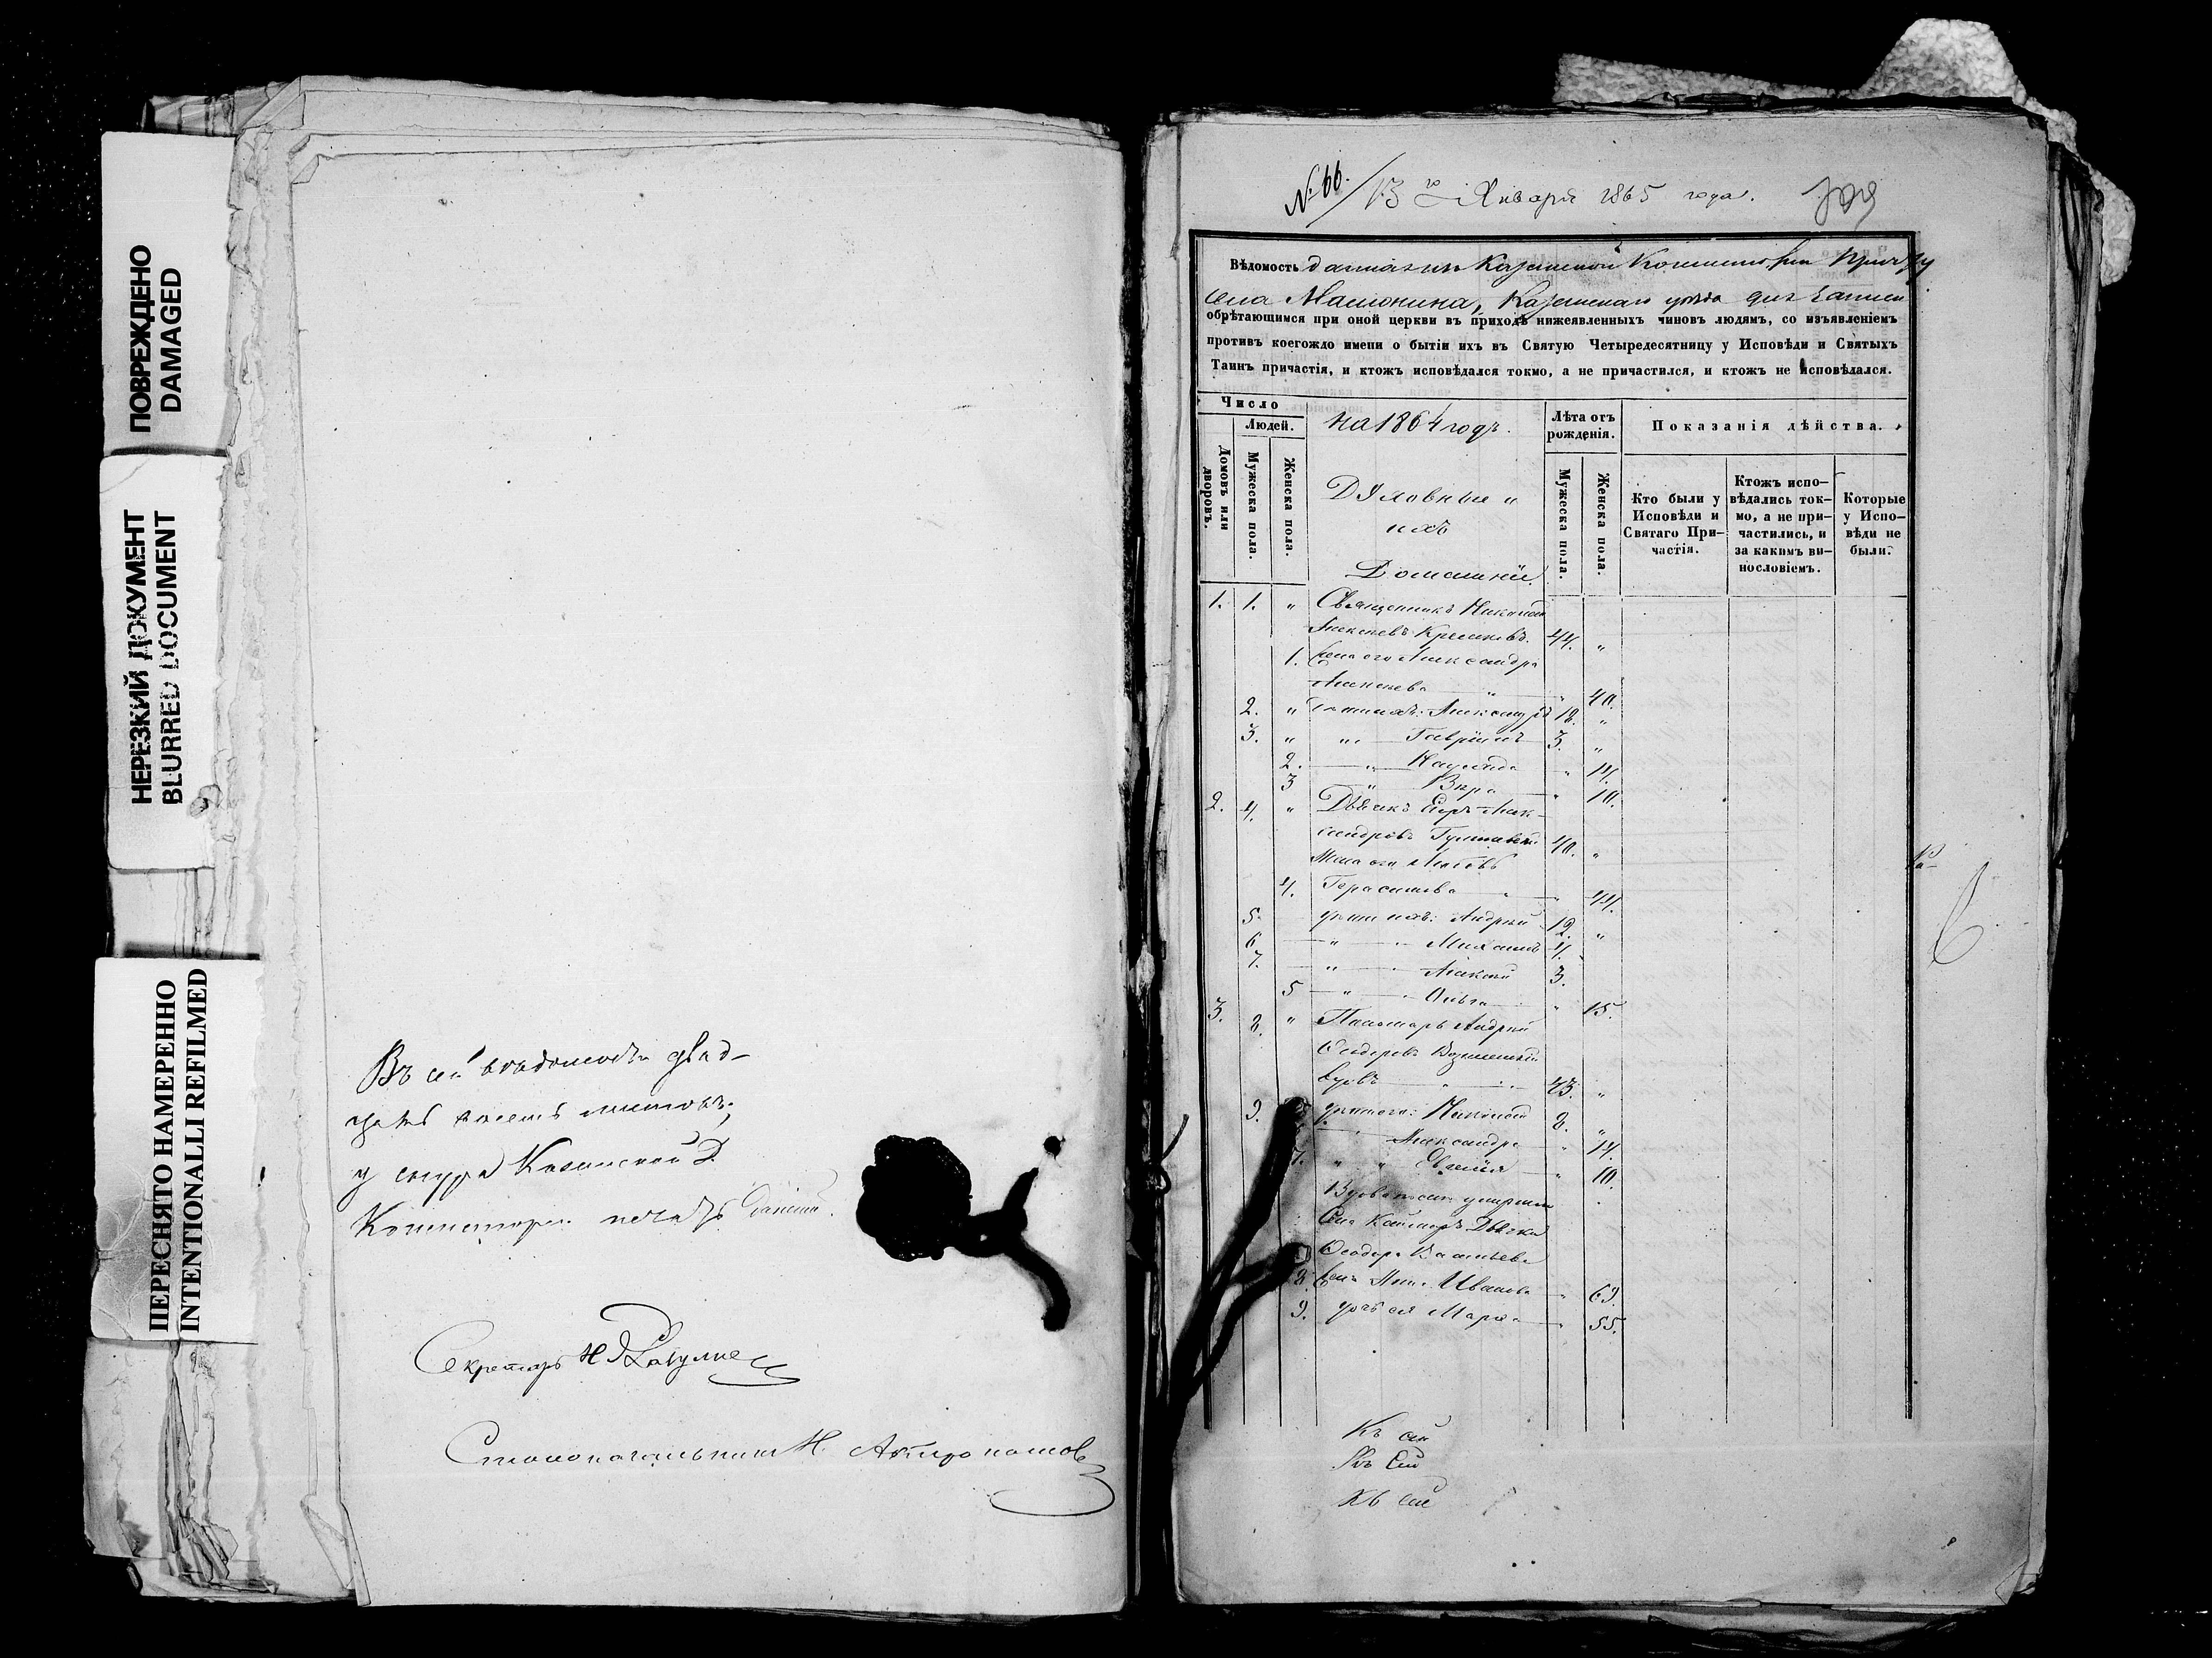 ПОВРЕЖДЕНО
DAMAGED
НЕРЕЗКИЙ ДОКУМЕНТ
BLURRED DOCUMENT
ПЕРЕСНЯТО НАМЕРЕННО
INTENTIONALLI REFILMED
Въ сей ведомости двад-
цать восемь листовъ,
у снура Казанской Д.
Консисторіи печать
Секретарь Н
Столоначальникъ Н.
№ 66. / 13 го Января 1865 года.
Вѣдомость данная изъ Казанской Консисторіи Причту
села Машонина, Казанскаго уѣзда для записи
обрѣтающимся при оной церкви въ приходѣ нижеявленныхъ чиновъ людямъ, со изъявленіемъ
противъ коегождо имени о бытіи ихъ въ Святую Четыредесятницу у Исповѣди и Святыхъ
Таинъ причастія, и ктожъ исповѣдался токмо, а не причастился, и ктожъ не исповѣдался.
Число
Людей.
Домовъ или дворовъ.
Мужеска пола.
Женска пола.
на 1864 годъ.
Духовные и
ихъ
Домашніе
Лѣта отъ рожденія.
Мужеска пола.
Женска пола.
Показанія дѣйства.
Кто были у Исповѣди и Святаго При-частія.
Ктожъ испо-вѣдались ток-мо, а не при-частились, и за какимъ ви-нословіемъ.
Которые у Испо-вѣди не были.
1. 1. " Священникъ Николай
Алексеевъ 44. "
1. Жена его Александра
Алексеева " 40.
2. " Дети ихъ: Александръ 18. "
3. " " Гавріилъ 3. "
2. " " 14.
3 " Вера " 10.
2. 4. " Дьячекъ Егоръ Алек-
сандровъ 40. "
Жена его Любовь
4. Герасимова " 44.
5. дети ихъ: Андрей 12. "
6. " Михаилъ 4.
7. " Алексей 3.
5 " Ольга " 15.
3. 8. " Пономарь Андрей
Феодоровъ
вдовъ 43. "
9. дети его: Николай 8. "
" Александра " 14.
7. " " Евгенія " 10.
Вдова
Села Каймаръ Дьячка
Феодора Васильева
8. жена Анна Иванова " 69.
9. дочь ея Марѳа " 55.
Къ сей
Къ сей
Къ сей